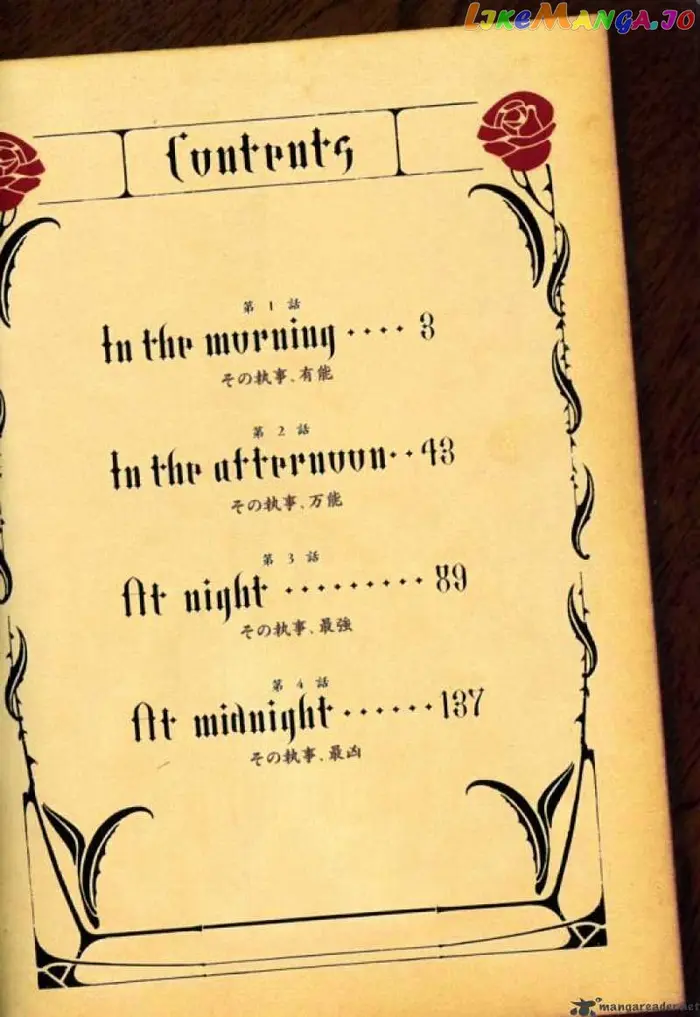 LIKEMANGA.IO
Contents
第1話
In the morning ···· 3
その執事、有能
第2話
In the afternoon ·· 43
その執事、万能
第3話
At night ········· 89
その執事、最強
第4話
At midnight ······ 137
その執事、最凶
mangareader.net